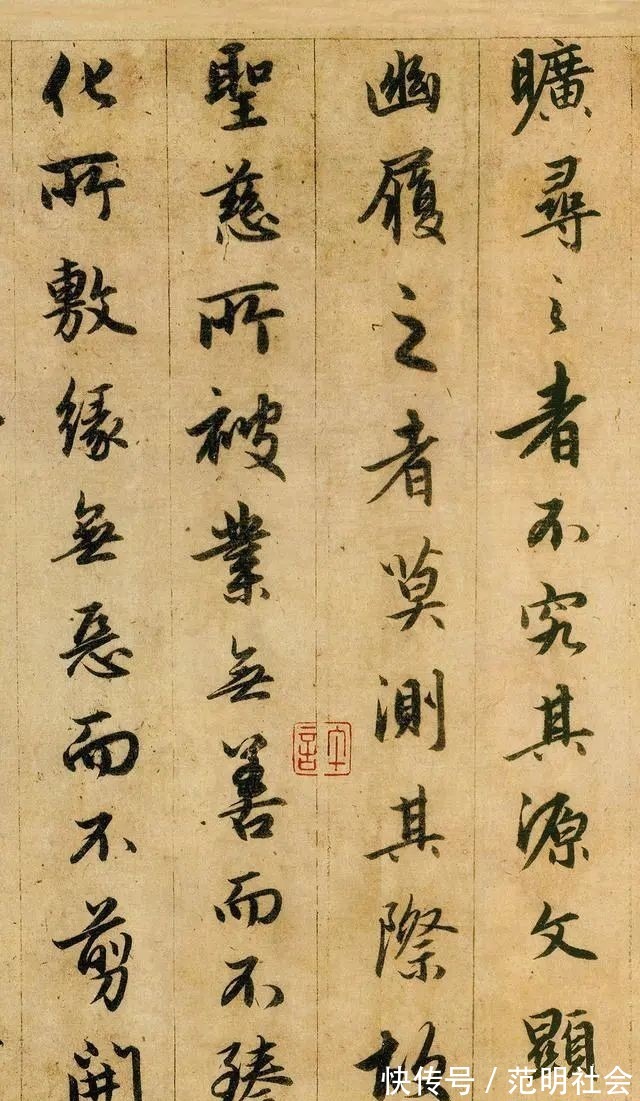 曠尋之者不究其源文顯
幽履之者莫測其際
聖慈所被業無善而不臻
化所敷緣無惡而不剪開
快传号 / 范明社会